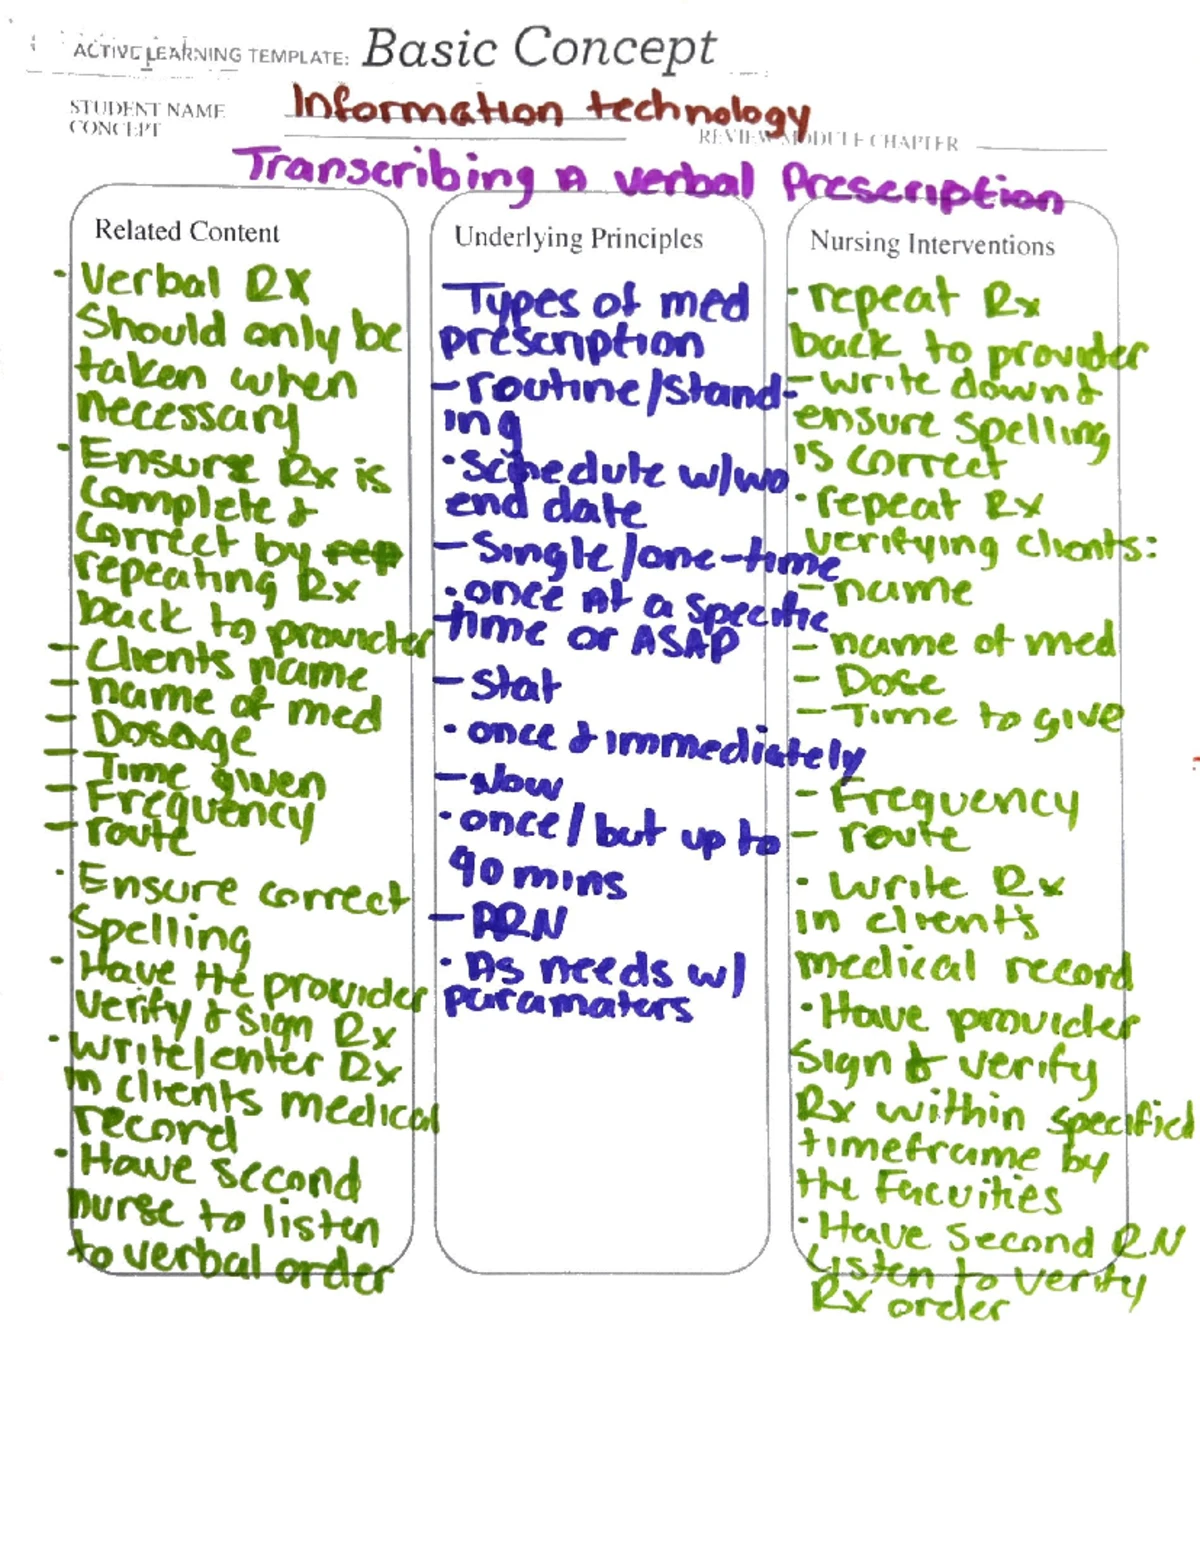 ACTIVE LEARNING TEMPLATE: Basic Concept
STUDENT NAME
CONCEPT
Information technology
REVIEW MODULE CHAPTER
Transcribing A verbal Prescription
Related Content
· Verbal RX
Should only be
taken when
necessary
· Ensure Rx is
complete &
correct by rep
repeating Rx
back to provider
- Clients name
- name of med
- Dosage
- Time given
- Frequency
- route
· Ensure correct
Spelling
· Have the provider
verify & sign Rx
· write/enter Rx
in clients medical
record
· Have second
nurse to listen
to verbal order
Underlying Principles
Types of med
prescription
- routine/stand-
ing
· schedule w/wo
end date
- Single/one-time
· once At a specific
time or ASAP
- Stat
· once & immediately
- Now
· once/but up to
90 mins
- PRN
· As needs w/
paramaters
Nursing Interventions
· repeat Rx
back to provider
- write down &
ensure spelling
is correct
· repeat Rx
verifying clients:
- name
- name of med
- Dose
- Time to give
- Frequency
- route
· write Rx
in client's
medical record
· Have provider
sign & verify
Rx within specified
timeframe by
the Facuities
· Have second RN
Listen to verify
Rx order